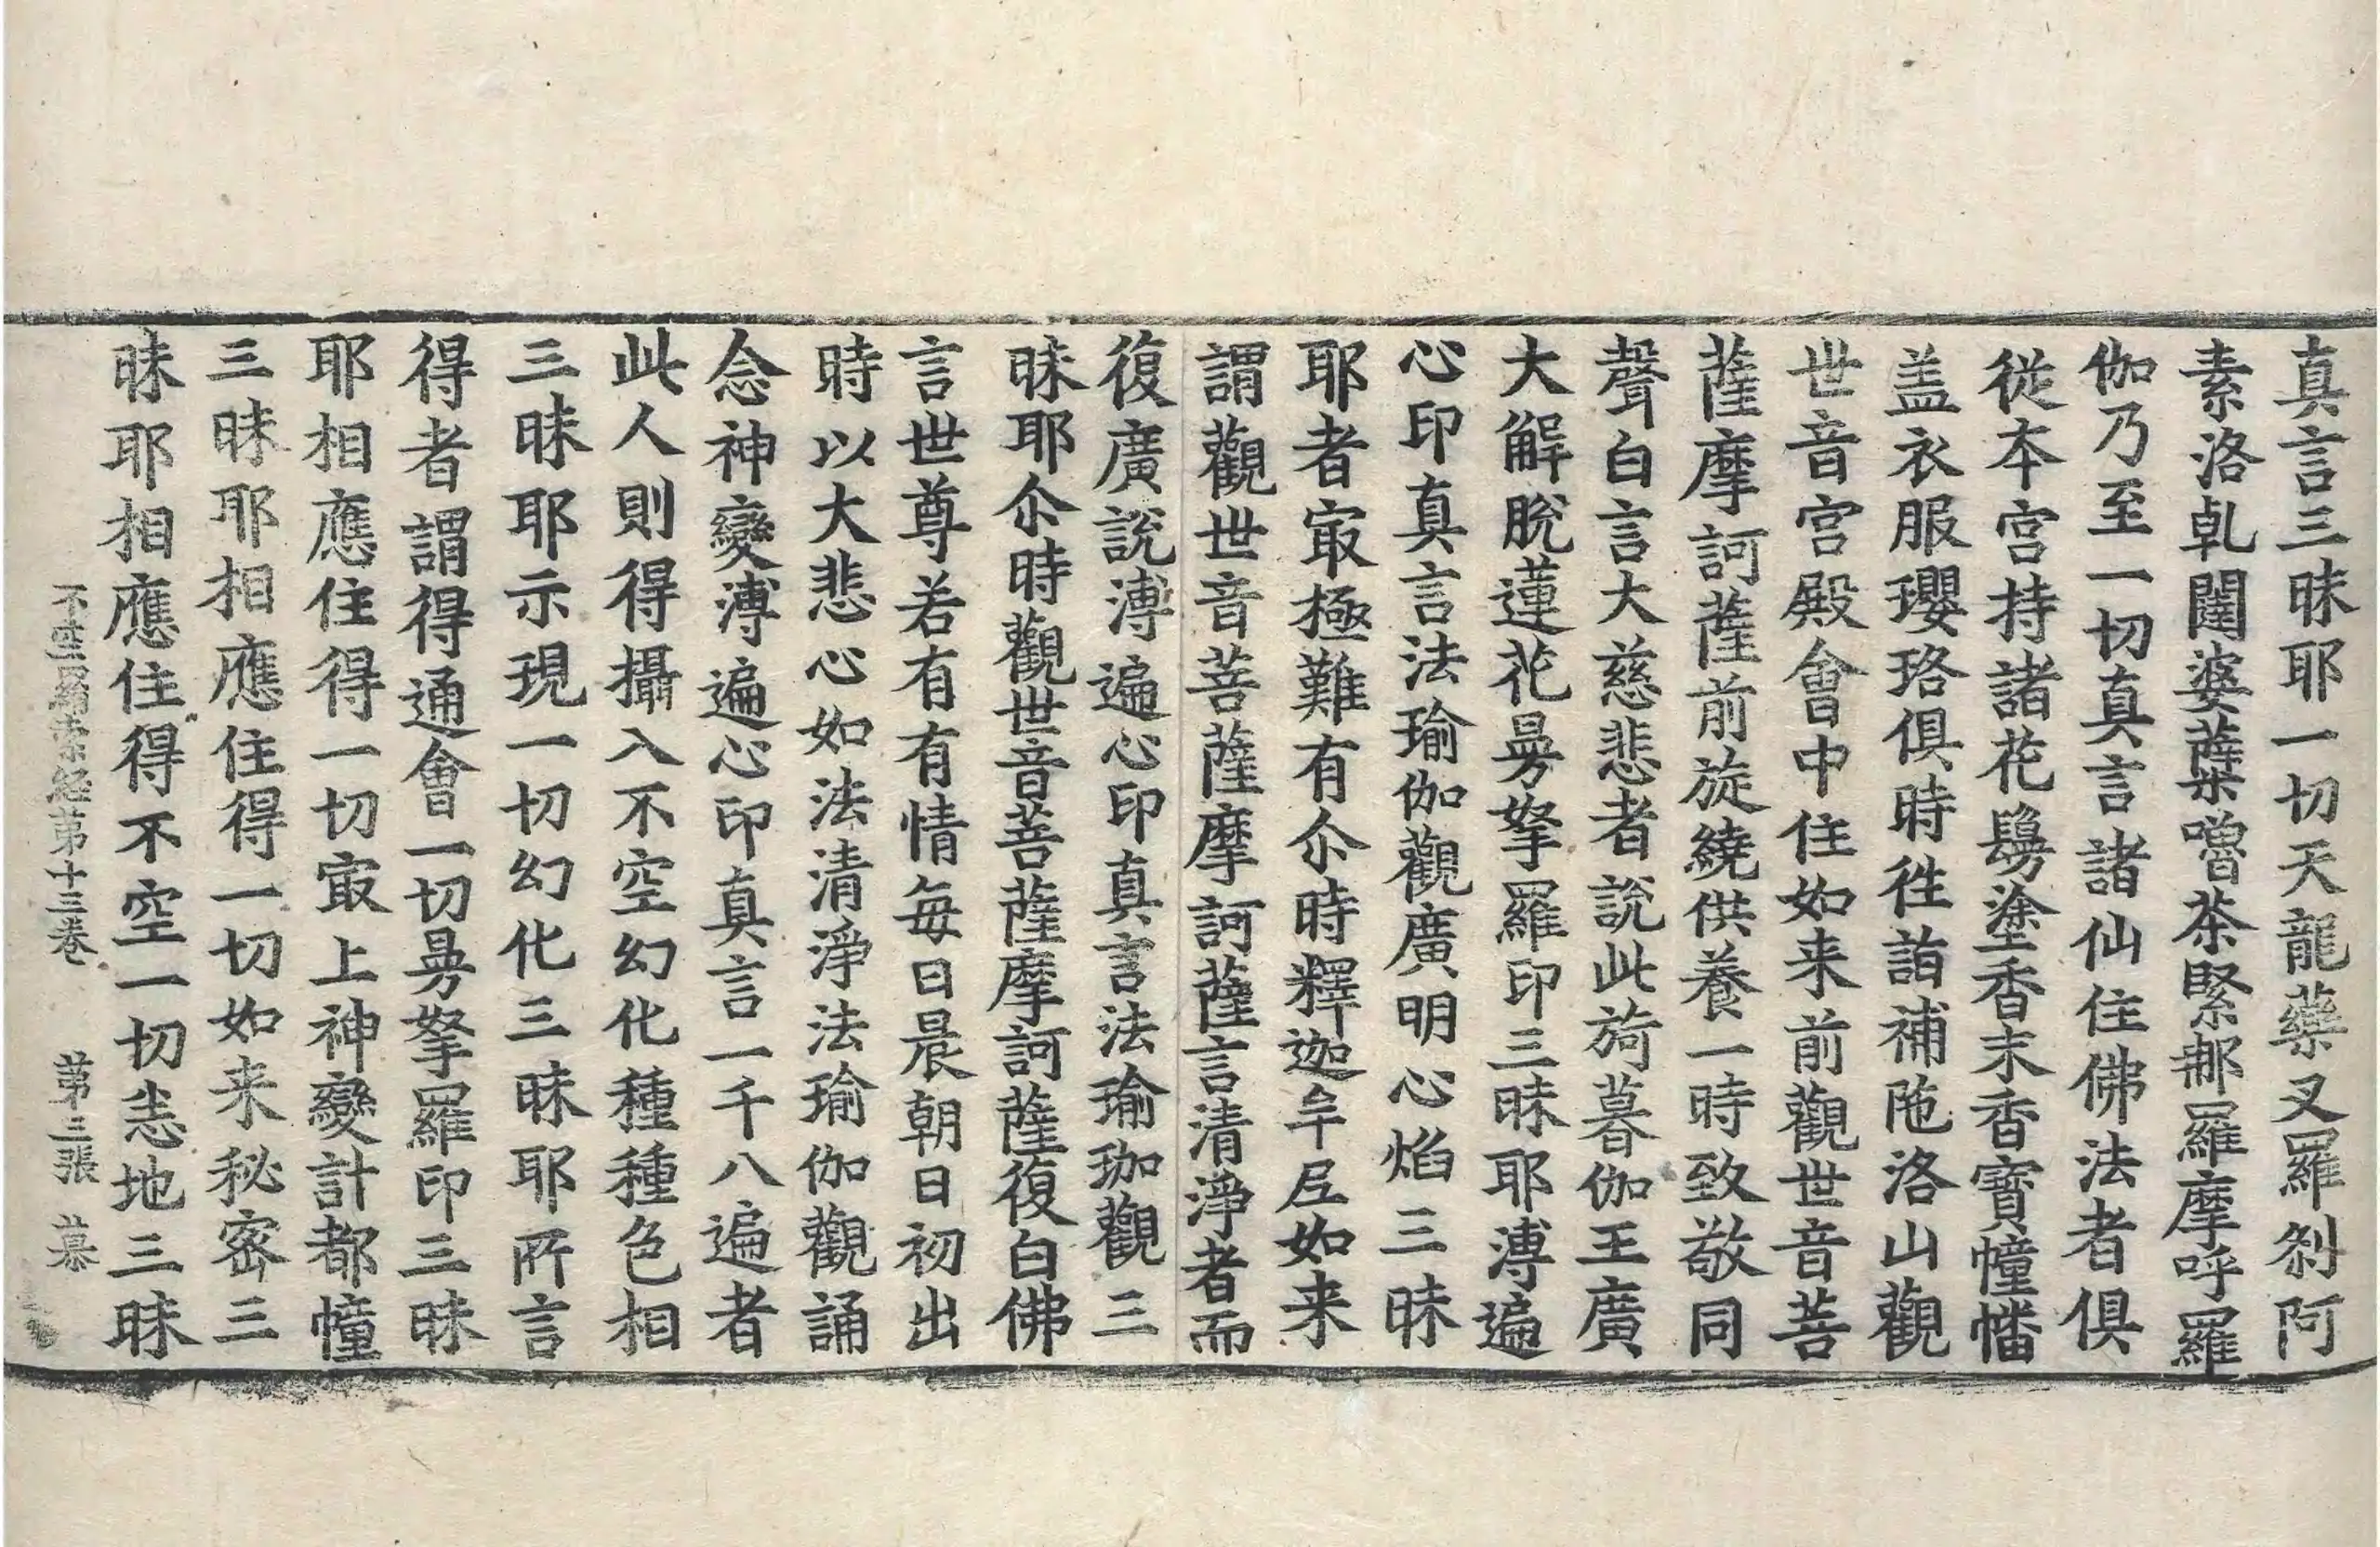 真言三昧耶一切天龍藥叉羅剎阿
素洛乹闥婆蘗嚕荼緊那羅摩呼羅
伽乃至一切真言諸仙住佛法者俱
從本宮持諸花鬘塗香末香寶幢幡
盖衣服瓔珞俱時徃詣補陁洛山觀
世音宮殿會中住如来前觀世音菩
薩摩訶薩前旋繞供養一時致敬同
聲白言大慈悲者說此旖暮伽王廣
大解脫蓮花曼拏羅印三昧耶溥遍
心印真言法瑜伽觀廣明心焰三昧
耶者㝡極難有尒時釋迦牟尼如来
謂觀世音菩薩摩訶薩言清淨者而
復廣說溥遍心印真言法瑜珈觀三
昧耶尒時觀世音菩薩摩訶薩復白佛
言世尊若有有情每日晨朝日初出
時以大悲心如法清淨法瑜伽觀誦
念神變溥遍心印真言一千八遍者
此人則得攝入不空幻化種種色相
三昧耶示現一切幻化三昧耶所言
得者謂得通會一切曼拏羅印三昧
耶相應住得一切㝡上神變計都幢
三昧耶相應住得一切如来秘密三
昧耶相應住得不空一切恚地三昧
不空羂索経苐十三卷 苐三張 慕